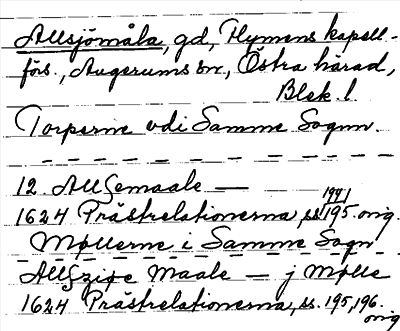 Allsjömåla, gd, Flymens kapell-
förs., Augerums sn, Östra härad,
Blek. l.
Torperne udi Samme Sognn.
12. Allsemaale —
1624 Prästrelationerna, ss. 194, 195. orig.
Møllerne i Samme Sogn
Allszige Maale — j Mølle
1624 Prästrelationerna, ss. 195, 196.
orig